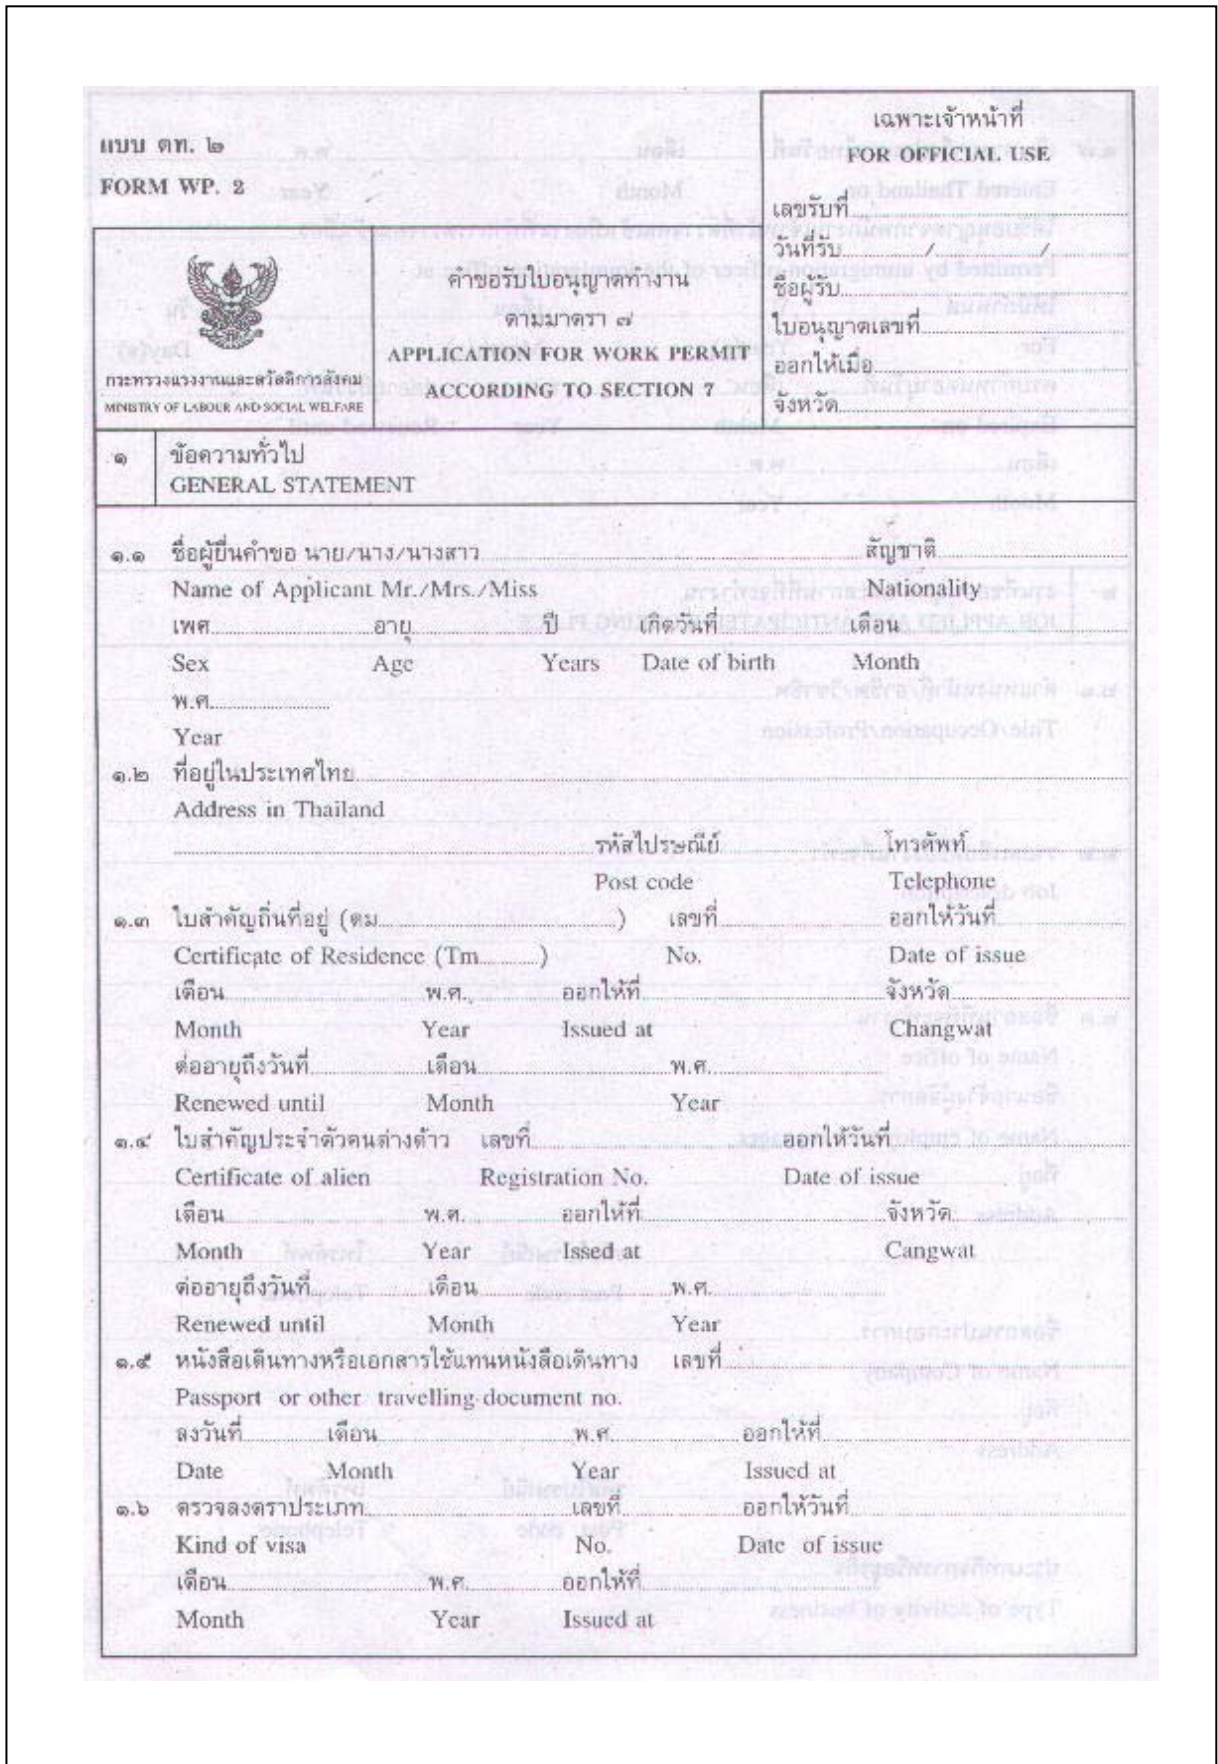 แบบ ตท. ๒
FORM WP. 2
เฉพาะเจ้าหน้าที่
FOR OFFICIAL USE
เลขรับที่
วันที่รับ / /
ชื่อผู้รับ
ใบอนุญาตเลขที่
ออกให้เมื่อ
จังหวัด
กระทรวงแรงงานและสวัสดิการสังคม
MINISTRY OF LABOUR AND SOCIAL WELFARE
คำขอรับใบอนุญาตทำงาน
ตามมาตรา ๗
APPLICATION FOR WORK PERMIT
ACCORDING TO SECTION 7
๑ ข้อความทั่วไป
GENERAL STATEMENT
๑.๑ ชื่อผู้ยื่นคำขอ นาย/นาง/นางสาว สัญชาติ
Name of Applicant Mr./Mrs./Miss Nationality
เพศ อายุ ปี เกิดวันที่ เดือน
Sex Age Years Date of birth Month
พ.ศ.
Year
๑.๒ ที่อยู่ในประเทศไทย
Address in Thailand
รหัสไปรษณีย์ โทรศัพท์
Post code Telephone
๑.๓ ใบสำคัญถิ่นที่อยู่ (ตม ) เลขที่ ออกให้วันที่
Certificate of Residence (Tm ) No. Date of issue
เดือน พ.ศ. ออกให้ที่ จังหวัด
Month Year Issued at Changwat
ต่ออายุถึงวันที่ เดือน พ.ศ.
Renewed until Month Year
๑.๔ ใบสำคัญประจำตัวคนต่างด้าว เลขที่ ออกให้วันที่
Certificate of alien Registration No. Date of issue
เดือน พ.ศ. ออกให้ที่ จังหวัด
Month Year Issed at Cangwat
ต่ออายุถึงวันที่ เดือน พ.ศ.
Renewed until Month Year
๑.๕ หนังสือเดินทางหรือเอกสารใช้แทนหนังสือเดินทาง เลขที่
Passport or other travelling document no.
ลงวันที่ เดือน พ.ศ. ออกให้ที่
Date Month Year Issued at
๑.๖ ตรวจลงตราประเภท เลขที่ ออกให้วันที่
Kind of visa No. Date of issue
เดือน พ.ศ. ออกให้ที่
Month Year Issued at